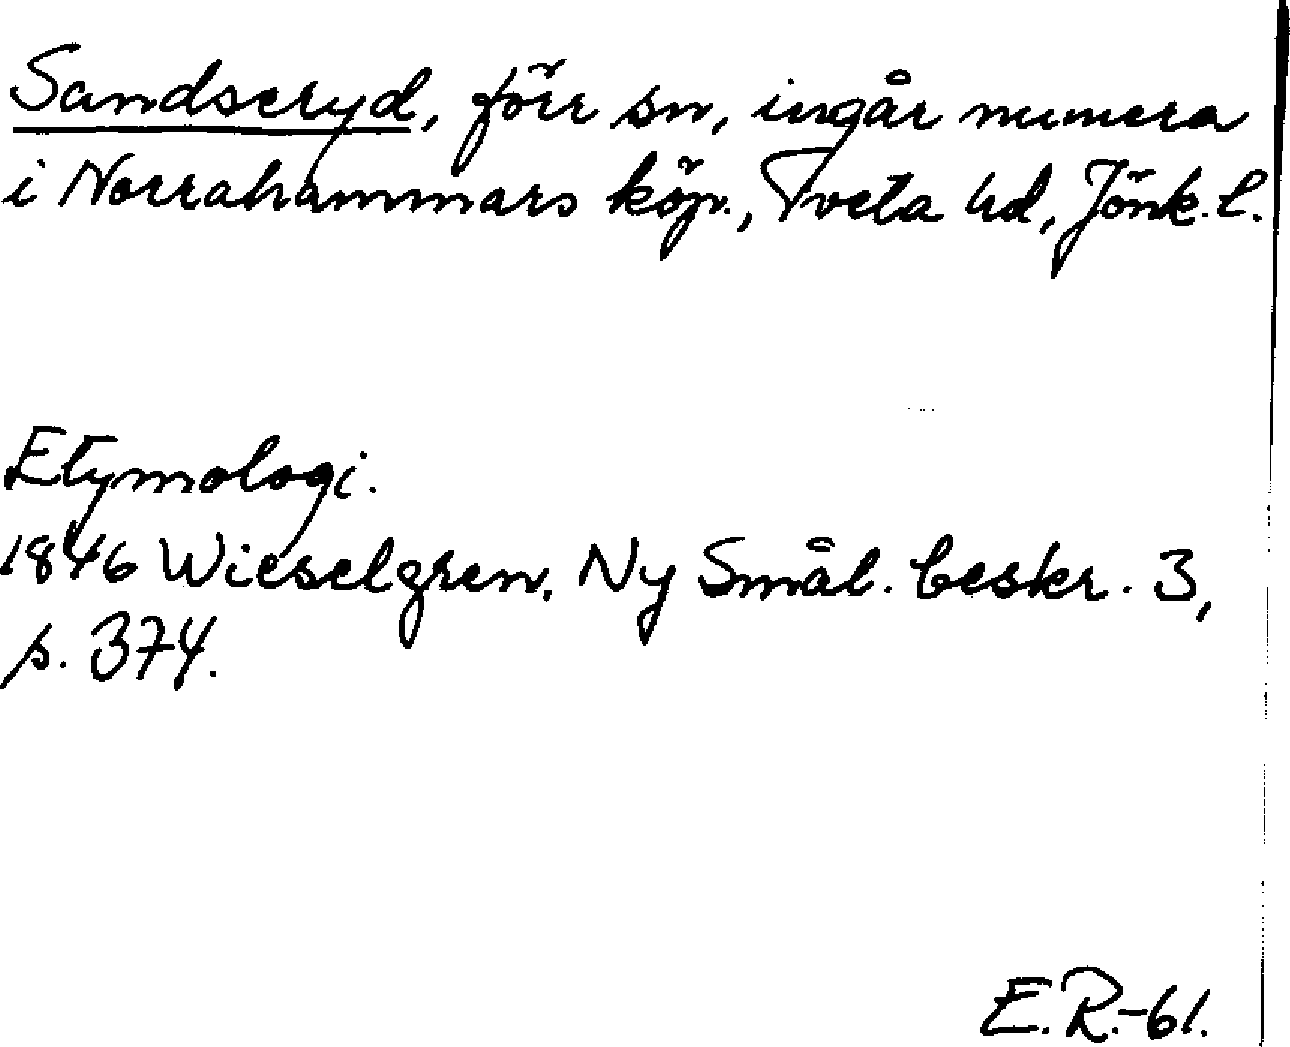 Sandseryd, förr sn, ingår numera
i Norrahammars köp., Tveta hd, Jönk. l.
Etymologi.
1846 Wieselgren. Ny Smål. beskr. 3,
s. 374.
E.R.-61.